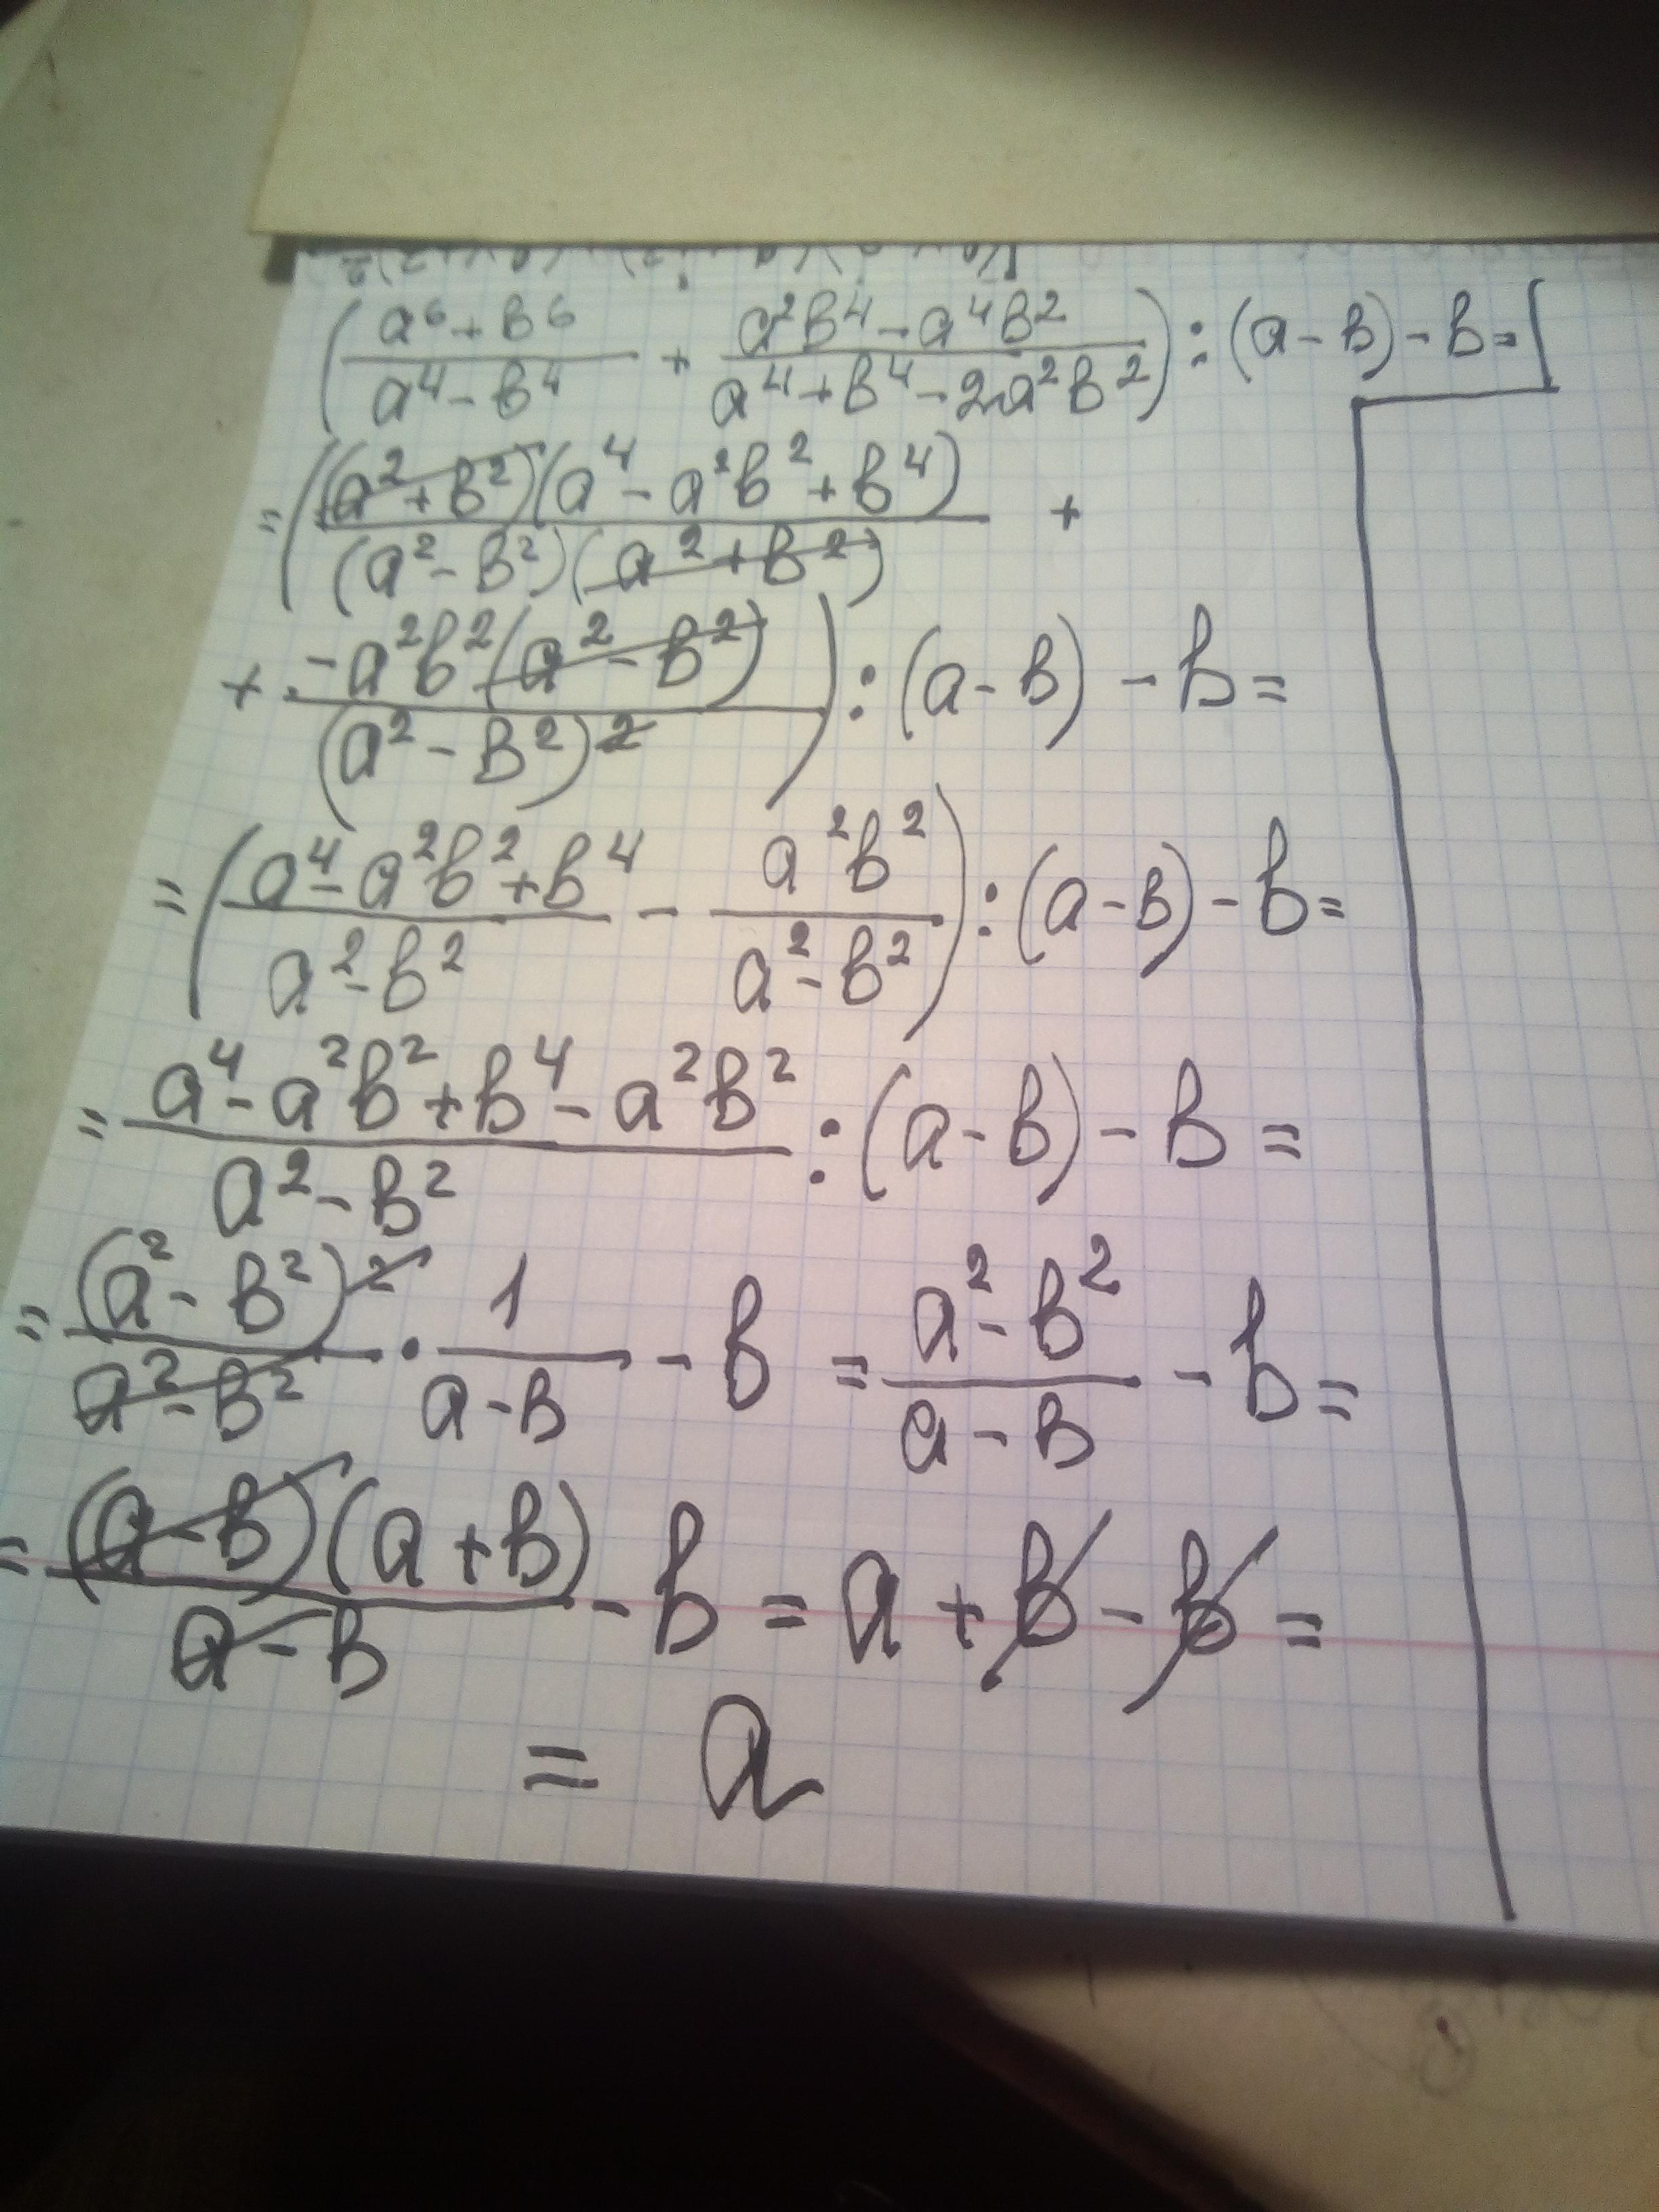 (a⁶+b⁶/a⁴-b⁴ + a²b⁴-a⁴b²/a⁴+b⁴-2a²b²):(a-b)-b=
=((a²+b²)(a⁴-a²b²+b⁴)/(a²-b²)(a²+b²) +
+ -a²b²(a²-b²)/(a²-b²)²):(a-b)-b=
=(a⁴-a²b²+b⁴/a²-b² - a²b²/a²-b²):(a-b)-b=
=a⁴-a²b²+b⁴-a²b²/a²-b² :(a-b)-b=
=(a²-b²)²/a²-b² · 1/a-b -b = a²-b²/a-b -b=
=(a-b)(a+b)/a-b -b = a+b-b=
= a